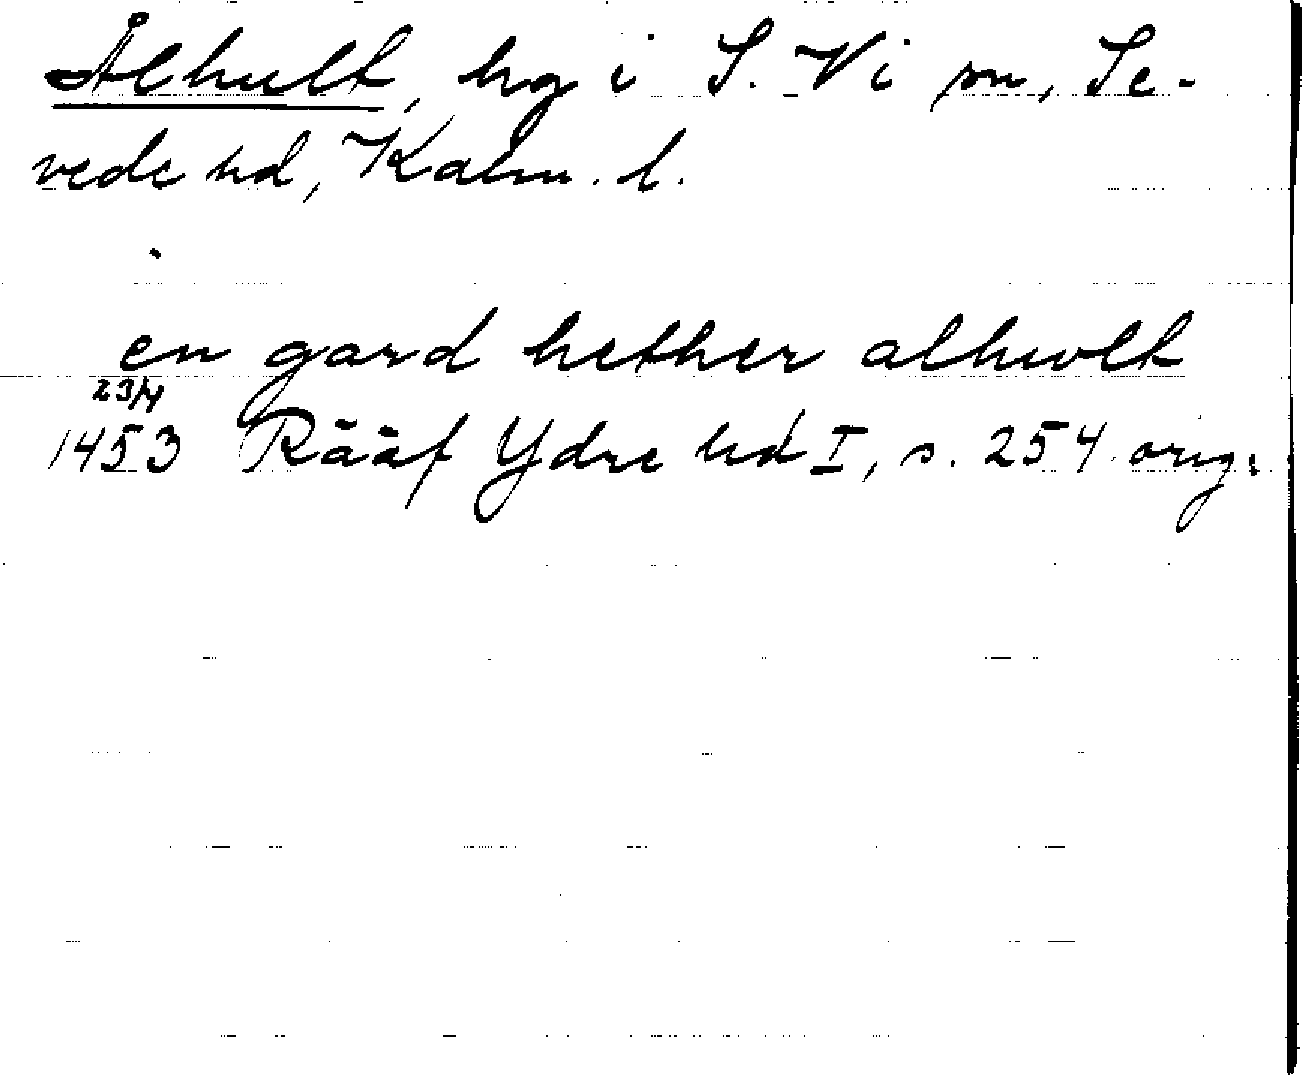 Ålhult, hg i S. Vi sn, Se-
vede hd, Kalm. l.
en gard hether alhwlt
23/4
1453 Rääf Ydre hd I, s. 254 orig.